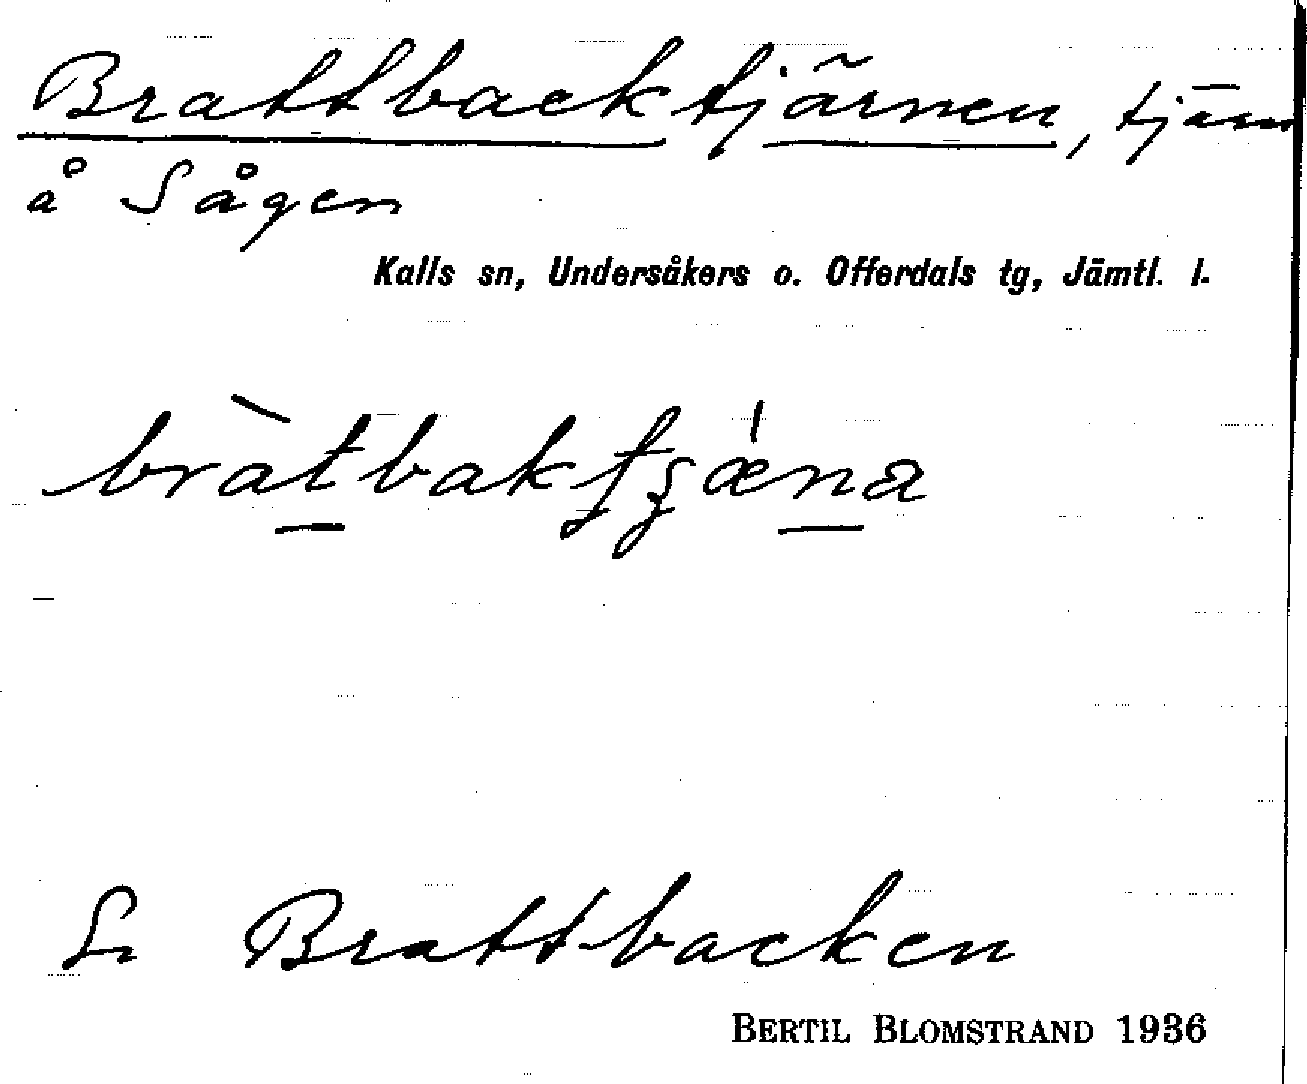 Brattbacktjärnen, tjärn
å Sågen
Kalls sn, Undersåkers o. Offerdals tg, Jämtl. l.
bràtbakʃʒǽna
Se Brattbacken
BERTIL BLOMSTRAND 1936